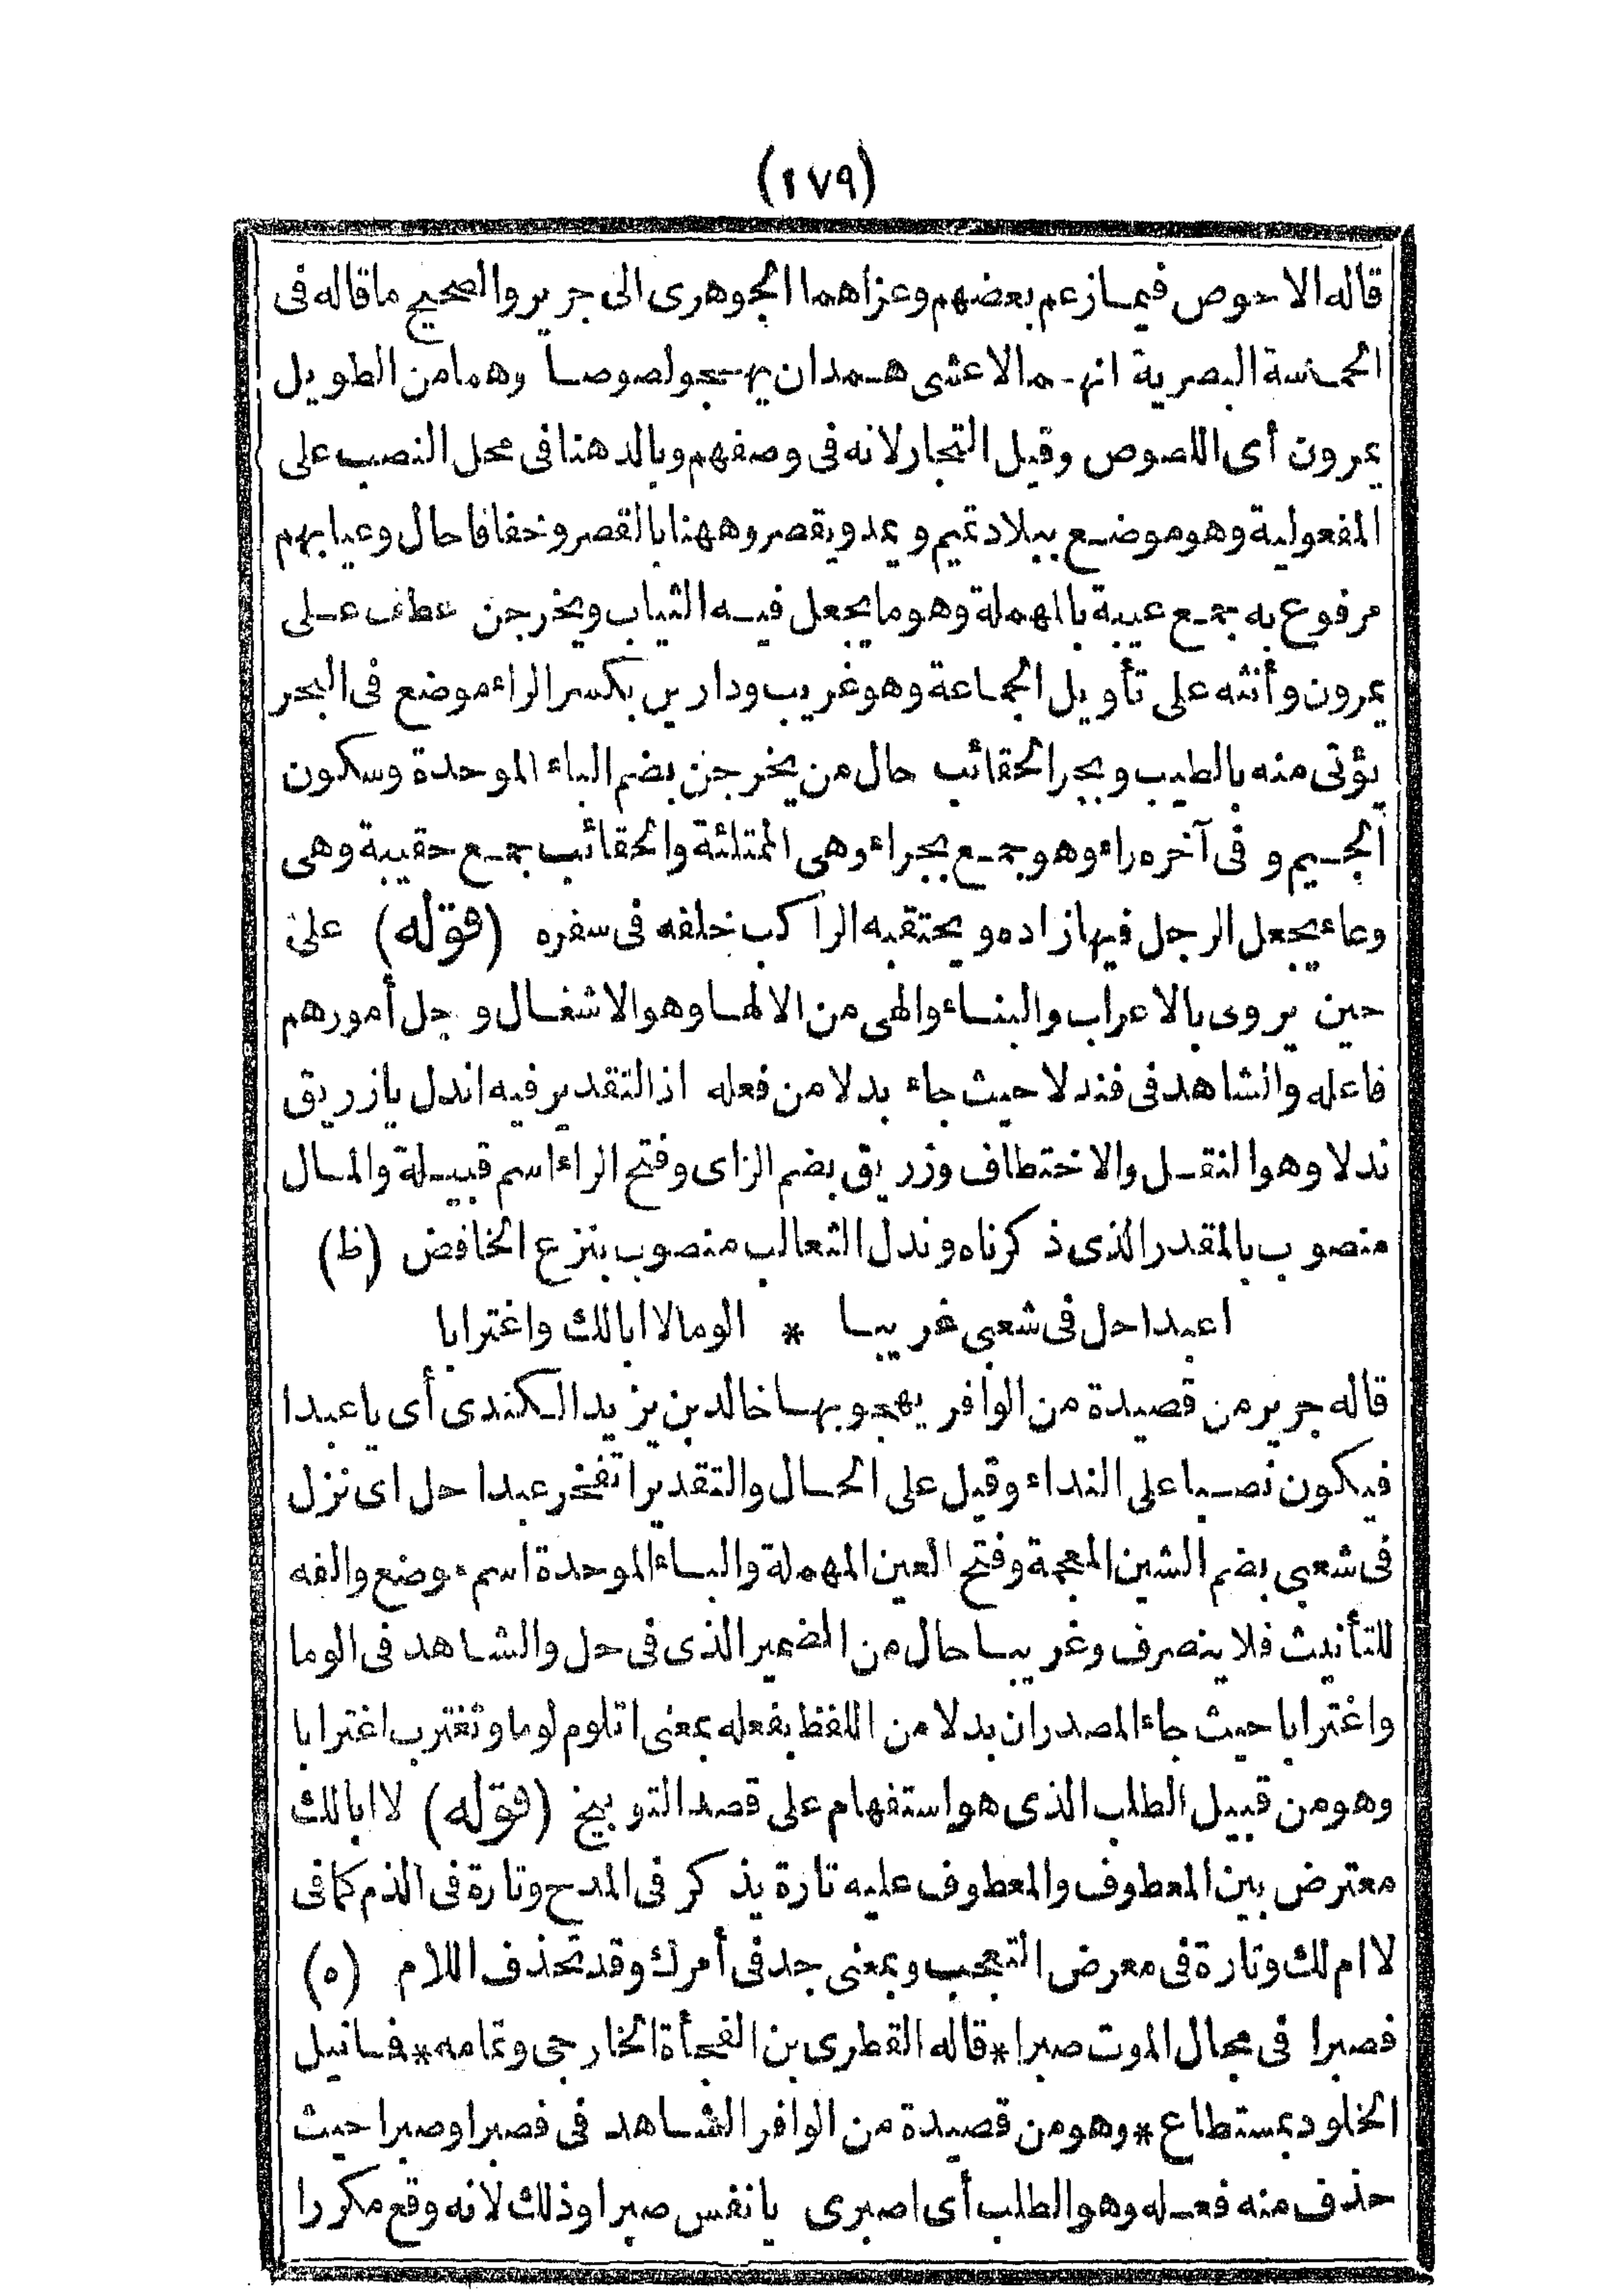 (١٧٩)
قاله الاحوص فيما زعم بعضهم وعزاهما الجوهرى الى جرير والصحيح ما قاله فى
الحماسة البصرية انهما لاعشى همدان يهجو لصوصا وهما من الطويل
يمرون أى اللصوص وقيل التجار لانه فى وصفهم وبالدهنا فى محل النصب على
المفعولية وهو موضع ببلاد تميم ويمد ويقصر وههنا بالقصر وخفافا حال وعيابهم
مرفوع به جمع عيبة بالمهملة وهو ما يجعل فيه الثياب ويخرجن عطف على
يمرون وأنثه على تأويل الجماعة وهو غريب ودارين بكسر الراء موضع فى البحر
يؤتى منه بالطيب وبجر الحقائب حال من يخرجن بضم الباء الموحدة وسكون
الجيم و فى آخره راء وهو جمع بجراء وهى الممتلئة والحقائب جمع حقيبة وهى
وعاء يجعل الرجل فيها زاده و يحتقبه الراكب خلفه فى سفره (قوله) على
حين يروى بالاعراب والبناء والهى من الالها وهو الاشغال و جل أمورهم
فاعله والشاهد فى فندلا حيث جاء بدلا من فعله اذ التقدير فيه اندل يا زريق
ندلا وهو النقل والاختطاف وزريق بضم الزاى وفتح الراء اسم قبيلة والمال
منصوب بالمقدر الذى ذكرناه وندل الثعالب منصوب بنزع الخافض (ظ)
اعبدا حل فى شعبى غريبا * الوما لا ابا لك واغترابا
قاله جرير من قصيدة من الوافر يهجو بها خالد بن يزيد الكندى أى يا عبدا
فيكون نصبا على النداء وقيل على الحال والتقدير اتفخر عبدا حل اى نزل
فى شعبى بضم الشين المعجمة وفتح العين المهملة والباء الموحدة اسم موضع والفه
للتأنيث فلا ينصرف وغريبا حال من الضمير الذى فى حل والشاهد فى الوما
واغترابا حيث جاء المصدران بدلا من اللفظ بفعله بمعنى اتلوم لوما وتغترب اغترابا
وهو من قبيل الطلب الذى هو استفهام على قصد التوبيخ (قوله) لا ابا لك
معترض بين المعطوف والمعطوف عليه تارة يذكر فى المدح وتارة فى الذم كما فى
لا ام لك وتارة فى معرض التعجب وبمعنى جد فى أمرك وقد تحذف اللام (ه)
فصبرا فى مجال الموت صبرا * قاله القطرى بن الفجأة الخارجى وتمامه * فما نيل
الخلود بمستطاع * وهو من قصيدة من الوافر الشاهد فى فصبرا وصبرا حيث
حذف منه فعله وهو الطلب أى اصبرى يا نفس صبرا وذلك لانه وقع مكررا